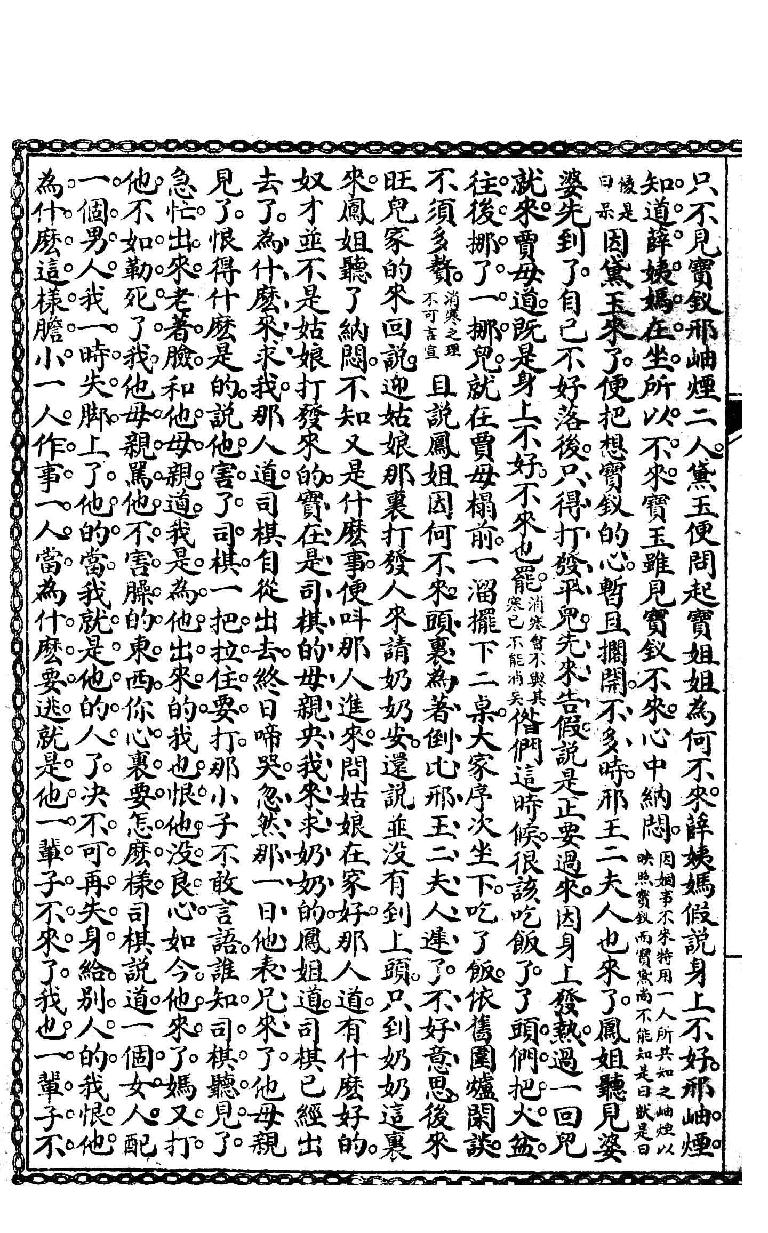 只不見寶釵邢岫煙二人黛玉便問起寶姐姐為何不來薛姨媽假說身上不好邢岫煙
知道薛姨媽在坐所以不來寶玉雖見寶釵不來心中納悶因姻事不宋特用一人所共知之岫煙以映照寶釵而寶黛尚不能知是曰獃是曰
慢是曰呆因黛玉來了便把想寶釵的心暫且擱開不多時邢王二夫人也來了鳳姐聽見婆
婆先到了自己不好落後只得打發平兒先來告假說是正要過來因身上發熱過一回兒
就來賈母道既是身上不好不來也罷消寒會不與其寒已不能消矣偺們這時候很該吃飯了了頭們把火盆
往後挪了一挪兒就在賈母榻前一溜擺下二桌大家序次坐下吃了飯依舊圍爐閑談
不須多贅消寒之理不可言宣且說鳳姐因何不來頭裏為著倒比邢王二夫人遲了不好意思後來
旺兒家的來回說迎姑娘那裏打發人來請奶奶安還說並没有到上頭只到奶奶這裏
來鳳姐聽了納悶不知又是什麽事便叫那人進來問姑娘在家好那人道有什麽好的
奴才並不是姑娘打發來的寶在是司棋的母親央我來求奶奶的鳳姐道司棋已經出
去了為什麽來求我那人道司棋自從出去終日啼哭忽然那一日他表兄來了他母親
見了恨得什麽是的說他害了司棋一把拉住要打那小子不敢言語誰知司棋聽見了
急忙出來老著臉和他母親道我是為他出來的我也恨他没良心如今他來了媽又打
他不如勒死了我他母親罵他不害臊的東西你心裏要怎麽樣司棋說道一個女人配
一個男人我一時失脚上了他的當我就是他的人了决不可再失身給別人的我恨他
為什麽這樣膽小一人作事一人當為什麽要逃就是他一輩子不來了我也一輩子不